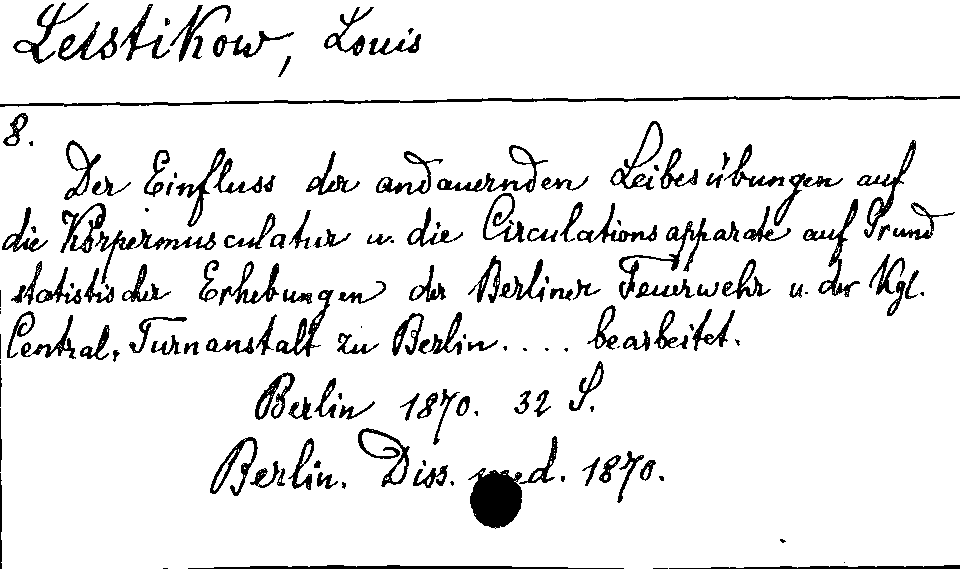 Leistikow, Louis
8.
Der Einfluss der andauernden Leibesübungen auf
die Körpermusculatur u. die Circulationsapparate auf Grund
statistischer Erhebungen der Berliner Feuerwehr u. der Kgl.
Central-Turnanstalt zu Berlin.... bearbeitet.
Berlin 1870. 32 S.
Berlin. Diss. med. 1870.